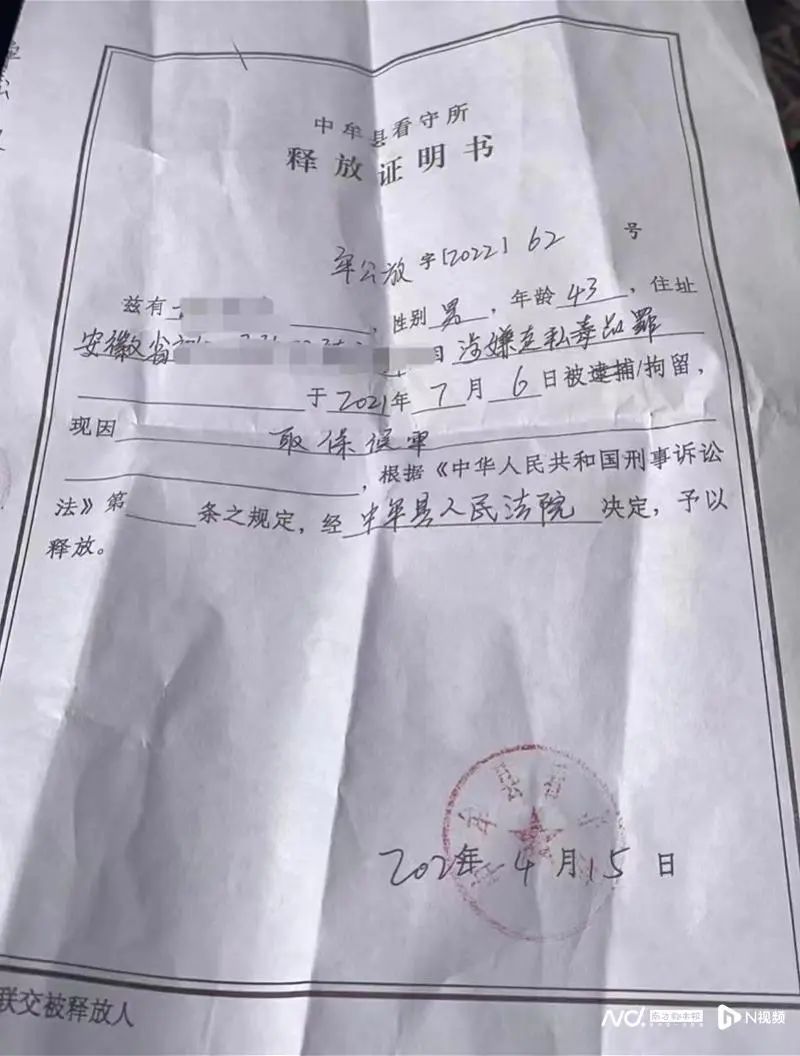 中牟县看守所
释放证明书
牟公放字[2022] 62 号
兹有 ，性别男，年龄43，住址
安徽省 日涉嫌走私毒品罪
于2021年7月6日被逮捕/拘留，
现因 取保候审
，根据《中华人民共和国刑事诉讼
法》第 条之规定，经中牟县人民法院决定，予以
释放。
年4月15日
联交被释放人
南方都市报
N视频